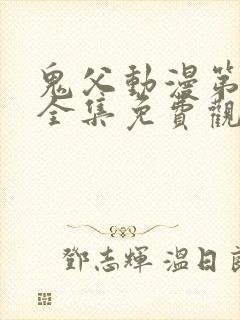 鬼父動漫第
全集免費觀
鄧志輝 溫日